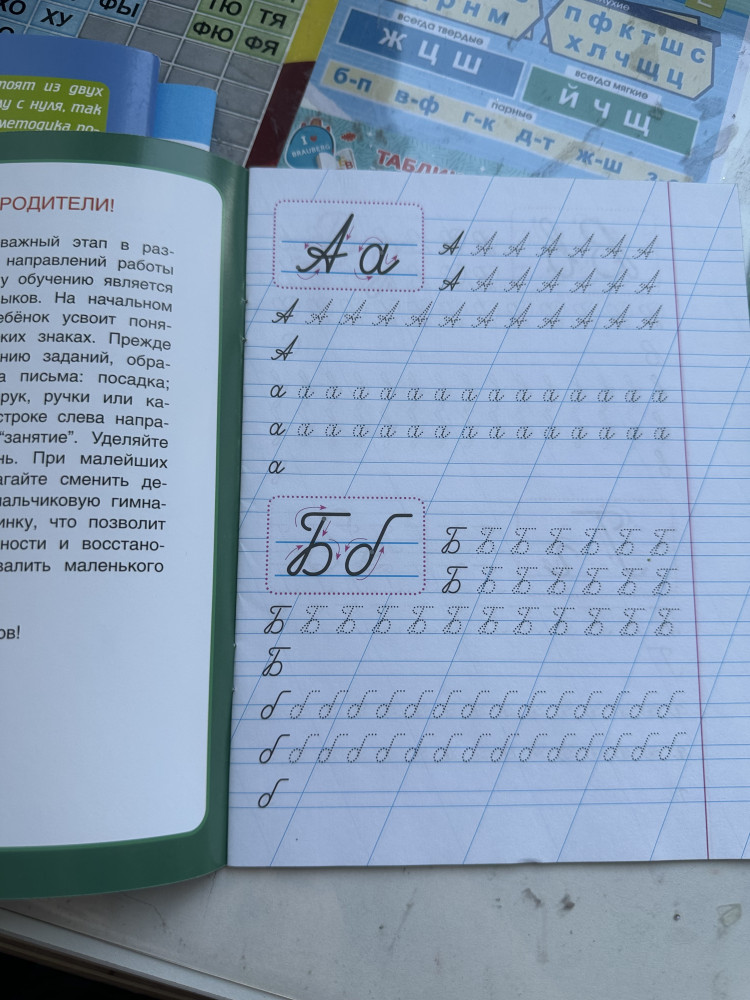 ХО ХУ ФЫ ТЮ ТЯ
ФЮ ФЯ
РНМ
всегда твердые
Ж Ц Ш
П Ф К Т Ш С
Х Л Ч Щ Ц
всегда мягкие
Й Ч Щ
парные
б-п в-ф г-к д-т ж-ш
I
BRAUBERG
РОДИТЕЛИ!
важный этап в раз-
направлений работы
обучению является
На начальном
усвоит поня-
знаках. Прежде
заданий, обра-
письма: посадка;
рук, ручки или ка-
строке слева напра-
“занятие”. Уделяйте
При малейших
сменить де-
пальчиковую гимна-
что позволит
и восстано-
маленького
А а
А А А А А А А
А А А А А А А
А А А А А А А А А А А А
А
а а а а а а а а а а а а а а а
а а а а а а а а а а а а а а а
а
Б б
Б Б Б Б Б Б Б
Б Б Б Б Б Б Б
Б Б Б Б Б Б Б Б Б Б Б Б
Б
б б б б б б б б б б б б б б б
б б б б б б б б б б б б б б б
б